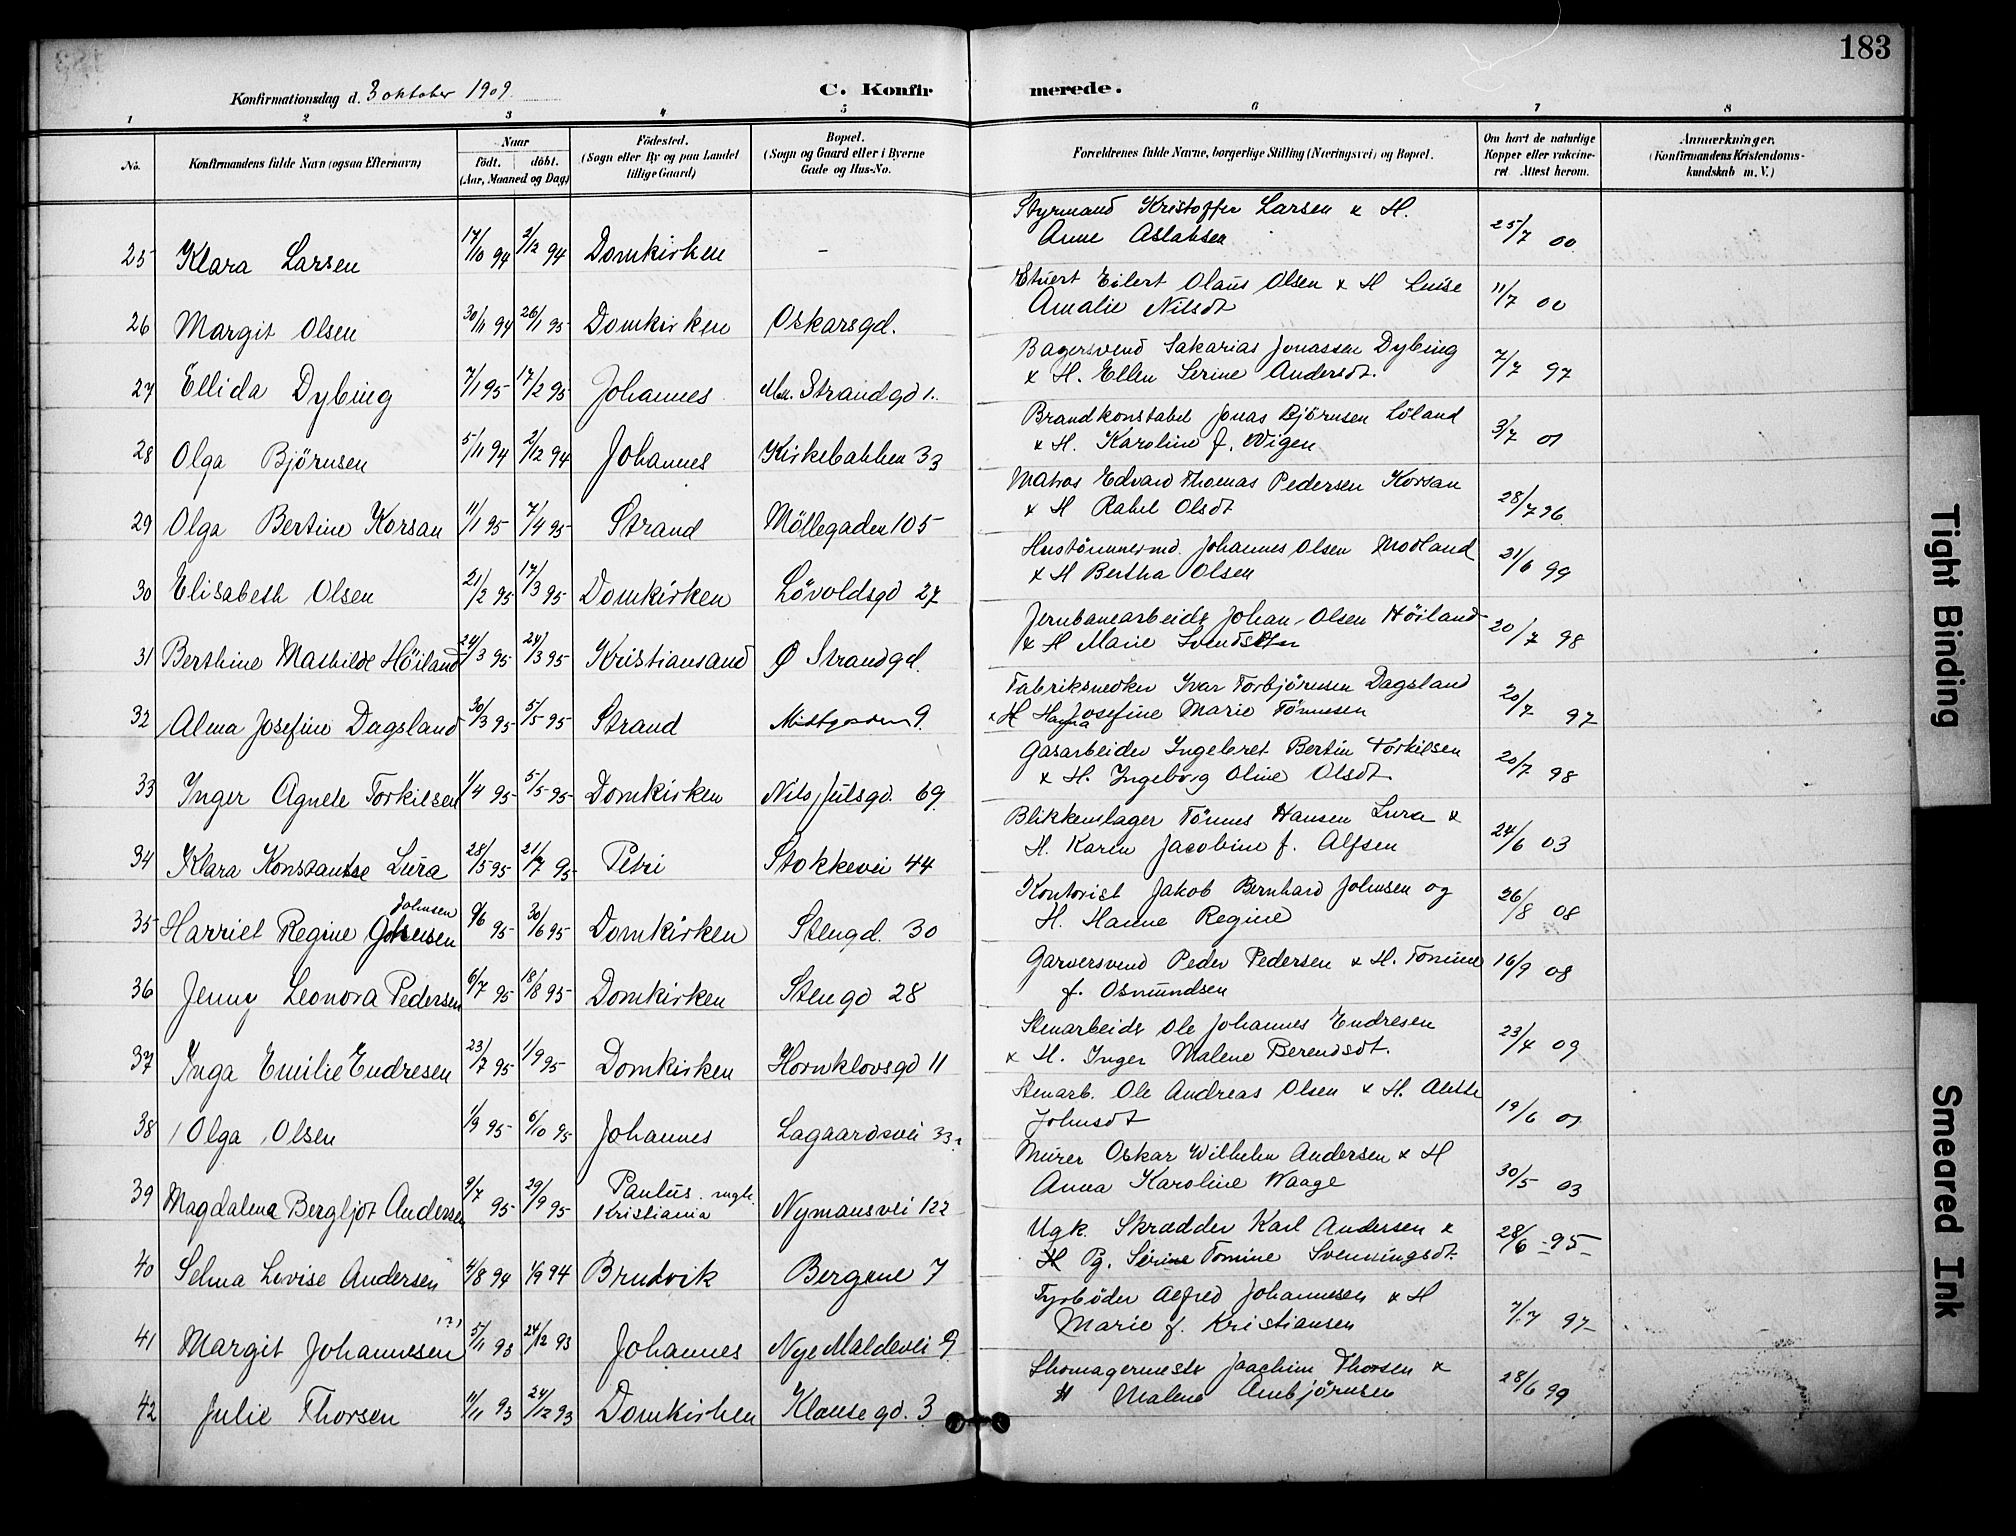 183
Konfirmationsdag d. 3 oktober 1909.
C. Konfirmerede.
1 2 3 4 5 6 7 8
No. Konfirmandens fulde Navn (ogsaa Efternavn) Naar födt. döbt. (Aar, Maaned og Dag) Födested. (Sogn eller By og paa Landet tillige Gaard) Bopæl. (Sogn og Gaard eller i Byerne Gade og Hus-No. Forældrenes fulde Navne, borgerlige Stilling (Næringsvei) og Bopæl. Om havt de naturlige Kopper eller vakcineret. Attest herom. Anmærkninger. (Konfirmandens Kristendomskundskab m. V.)
25 Klara Larsen 17/10 94 2/12 94 Domkirken - Styrmand Kristoffer Larsen & H. Anne Aslaksen 25/7 00
26 Margit Olsen 30/11 94 26/1 95 Domkirken Oskarsgd. Stuert Eilert Olaus Olsen & H Luise Amalie Nilsdt 11/7 00
27 Ellida Dybing 7/1 95 17/2 95 Johannes Strandgd 1. Bagersvend Sakarias Jonassen Dybing & H. Ellen Serine Andersdt. 7/7 97
28 Olga Björnsen 5/11 94 2/12 94 Johannes Kirkebakken 33 Brandkonstabel Jonas Björnsen Löland & H. Karoline f. Wigen 3/7 01
29 Olga Bertine Korsan 11/1 95 7/4 95 Strand Möllegaden 105 Matros Edvard Thomas Pedersen Korsan & H Rakel Olsdt 28/7 96
30 Elisabeth Olsen 21/2 95 17/3 95 Domkirken Lövoldsgd 27 Hustömmermd. Johannes Olsen Modland & H Bertha Olsen 21/6 99
31 Berthine Mathilde Höiland 24/3 95 24/3 95 Kristiansand Ø Strandgd. Jernbanearbeidr Johan Olsen Höiland & H Marie 20/7 98
32 Alma Josefine Dagsland 30/3 95 5/5 95 Strand 9. Ivar Torbjörnsen Dagsland & H Hanna Josefine Marie Tönnesen 20/7 97
33 Inger Agnete Torkilsen 1/4 95 5/5 95 Domkirken Nils Julsgd. 69 Gasarbeider Ingebret Bertin Torkilsen & H. Ingeborg Oline Olsdt 20/7 98
34 Klara Konstantse Lura 28/5 95 21/7 95 Petri Stokkevei 44 Blikkenslager Tönnes Hansen Lura & H. Karen Jacobine f. Alfsen 24/6 03
35 Harriet Regine Johnsen 9/6 95 30/6 95 Domkirken Stengd. 30 Kontorist Jakob Bernhard Johnsen og H. Hanne Regine 26/8 08
36 Jenny Leonora Pedersen 6/7 95 18/8 95 Domkirken Stengd 28 Garversvend Peder Pedersen & H. Tomine f. Osmundsen 16/9 08
37 Inga Emilie Endresen 23/7 95 1/9 95 Domkirken Hornklovsgd 11 Stenarbeidr Ole Johannes Endresen & H. Inger Malene Berendsdt. 23/4 09
38 Olga Olsen 1/9 95 6/10 95 Johannes Lagaardsvei Stenarb. Ole Andreas Olsen & H. Johnsdt 19/6 01
39 Magdalena Bergljot Andersen 9/7 95 29/9 95 Paulus. Kristiania Nymansvei 122 Murer Oskar Wilhelm Andersen & H Anna Karoline Waage 30/5 03
40 Selma Lovise Andersen 4/8 94 1/9 94 Brudvik Bergene 7 Ugk. Skrædder Karl Andersen & H Pg. Serine Tomine Svenningsdt. 28/6 -95-
41 Margit Johannesen 5/11 93 24/12 93 Johannes Nye Maldevei 9 Fyrböder Alfred Johannesen & H Marie f. Kristiansen 7/7 97
42 Julie Thorsen 11/11 93 24/12 93 Domkirken Klausegd. 3 Skomagermestr Joachim Thorsen & H Malene Ambjörnsen 28/6 99
Tight Binding
Smeared Ink